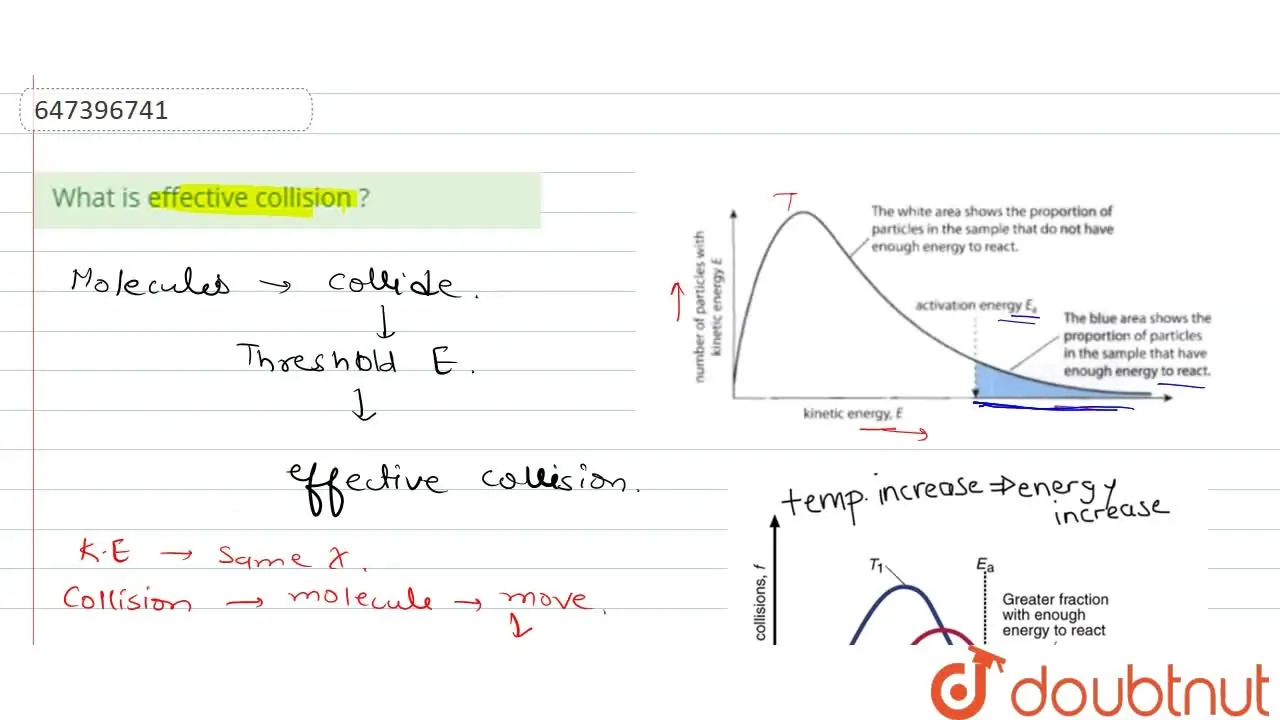 647396741
What is effective collision ?
Molecules → collide.
↓
Threshold E.
↓
effective collision.
K.E → Same X.
Collision → molecule → move.
↓
T
number of particles with
kinetic energy E
The white area shows the proportion of
particles in the sample that do not have
enough energy to react.
activation energy Ea
The blue area shows the
proportion of particles
in the sample that have
enough energy to react.
kinetic energy, E
temp. increase ⇒ energy
increase
collisions, f
T1
Ea
Greater fraction
with enough
energy to react
doubtnut